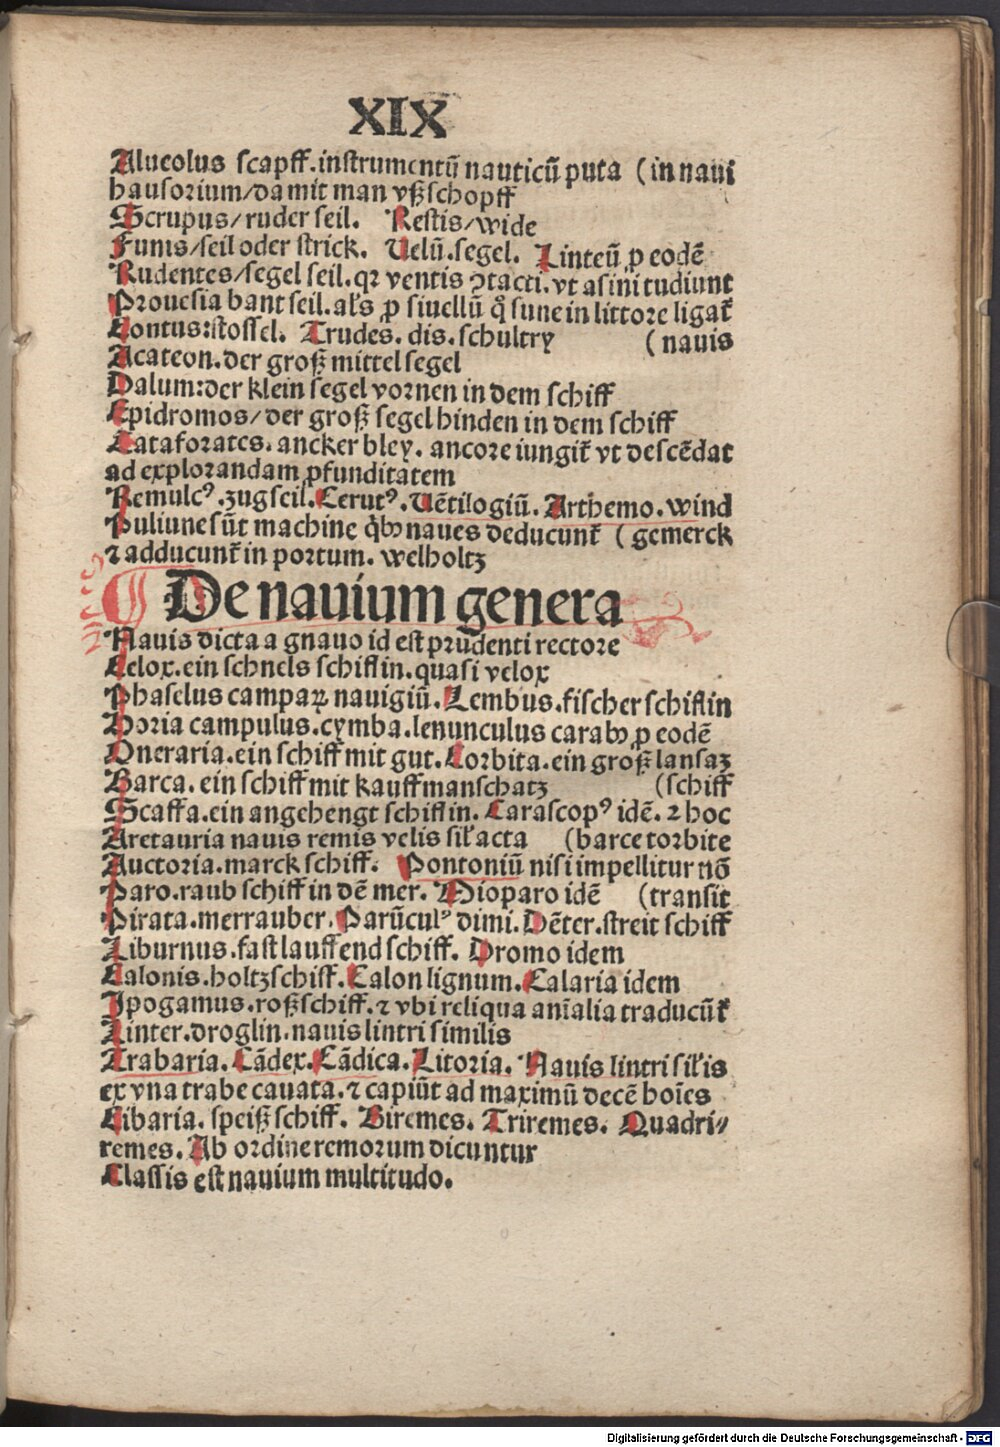 XIX
Alueolus scapff. instrumentū nauticū puta (in naui
hausorium/da mit man vßschopff
Scrupus/ruder seil. Restis/wide
Funis/seil oder strick. Uelū.segel. Linteū ꝓ eodē
Rudentes/segel seil.qꝛ ventis ↄtacti.vt asini tudiunt
Prouesia bant seil. als ꝓ siuellū qͦ fune in littore ligat᷑
Contus:stossel. Trudes. dis. schultry (nauis
Acateon.der groß mittel segel
Dalum:der klein segel vornen in dem schiff
Epidromos/der groß segel hinden in dem schiff
Cataforates. ancker bley. ancore iungit᷑ vt descēdat
ad explorandam ꝓfunditatem
Remulcꝰ.zugseil.Cerutꝰ.Uētilogiū. Arthemo. wind
Puliune sūt machine qͥbꝫ naues deducunt᷑ (gemerck
⁊ adducunt᷑ in portum. welholtz
De nauium genera
Nauis dicta a gnauo id est prudenti rectore
Celox.ein schnels schiflin.quasi velox
Phaselus campaꝝ nauigiū.Lembus.fischer schiflin
Doria campulus.cymba.lenunculus carabꝫ ꝓ eodē
Oneraria.ein schiff mit gut. Corbita.ein groß lansaz
Barca. ein schiff mit kauffmanschatz (schiff
Scaffa.ein angehengt schiflin. Carascopꝰ idē. ⁊ hoc
Aretauria nauis remis velis sił acta (barce torbite
Auctoria.marck schiff. Pontoniū nisi impellitur nō
Paro.raub schiff in dē mer. Mioparo idē (transit
Pirata.merrauber. Parūculꝰ dimi. Dēter.streit schiff
Liburnus.fast lauffend schiff. Dromo idem
Calonis.holtzschiff.Calon lignum.Calaria idem
Ipogamus.roßschiff.⁊ vbi reliqua aīalia traducūt᷑
Linter.droglin.nauis lintri similis
Trabaria. Cādex.Cādica.Litoria. Nauis lintri siłis
ex vna trabe cauata.⁊ capiūt ad maximū decē hoīes
Cibaria. speiß schiff. Biremes. Triremes. Quadri⸗
remes. Ab ordine remorum dicuntur
Classis est nauium multitudo.
Digitalisierung gefördert durch die Deutsche Forschungsgemeinschaft - DFG